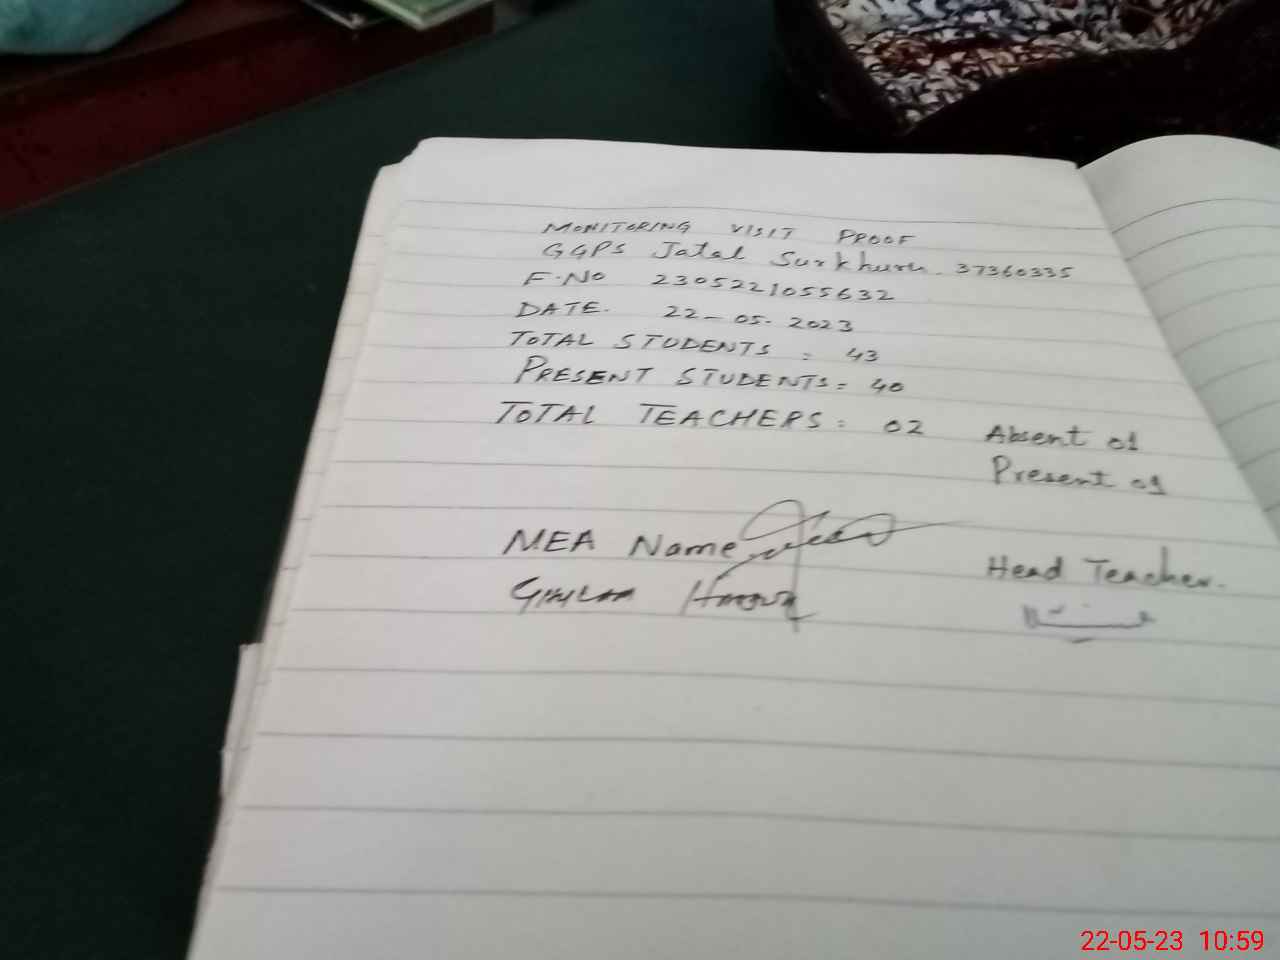 MONITORING VISIT PROOF
GGPS Jatal Surkhuru. 37360335
F.No 2305221055632
DATE. 22-05-2023
TOTAL STUDENTS = 43
PRESENT STUDENTS = 40
TOTAL TEACHERS = 02 Absent 01
Present 01
MEA Name
Head Teacher.
22-05-23 10:59